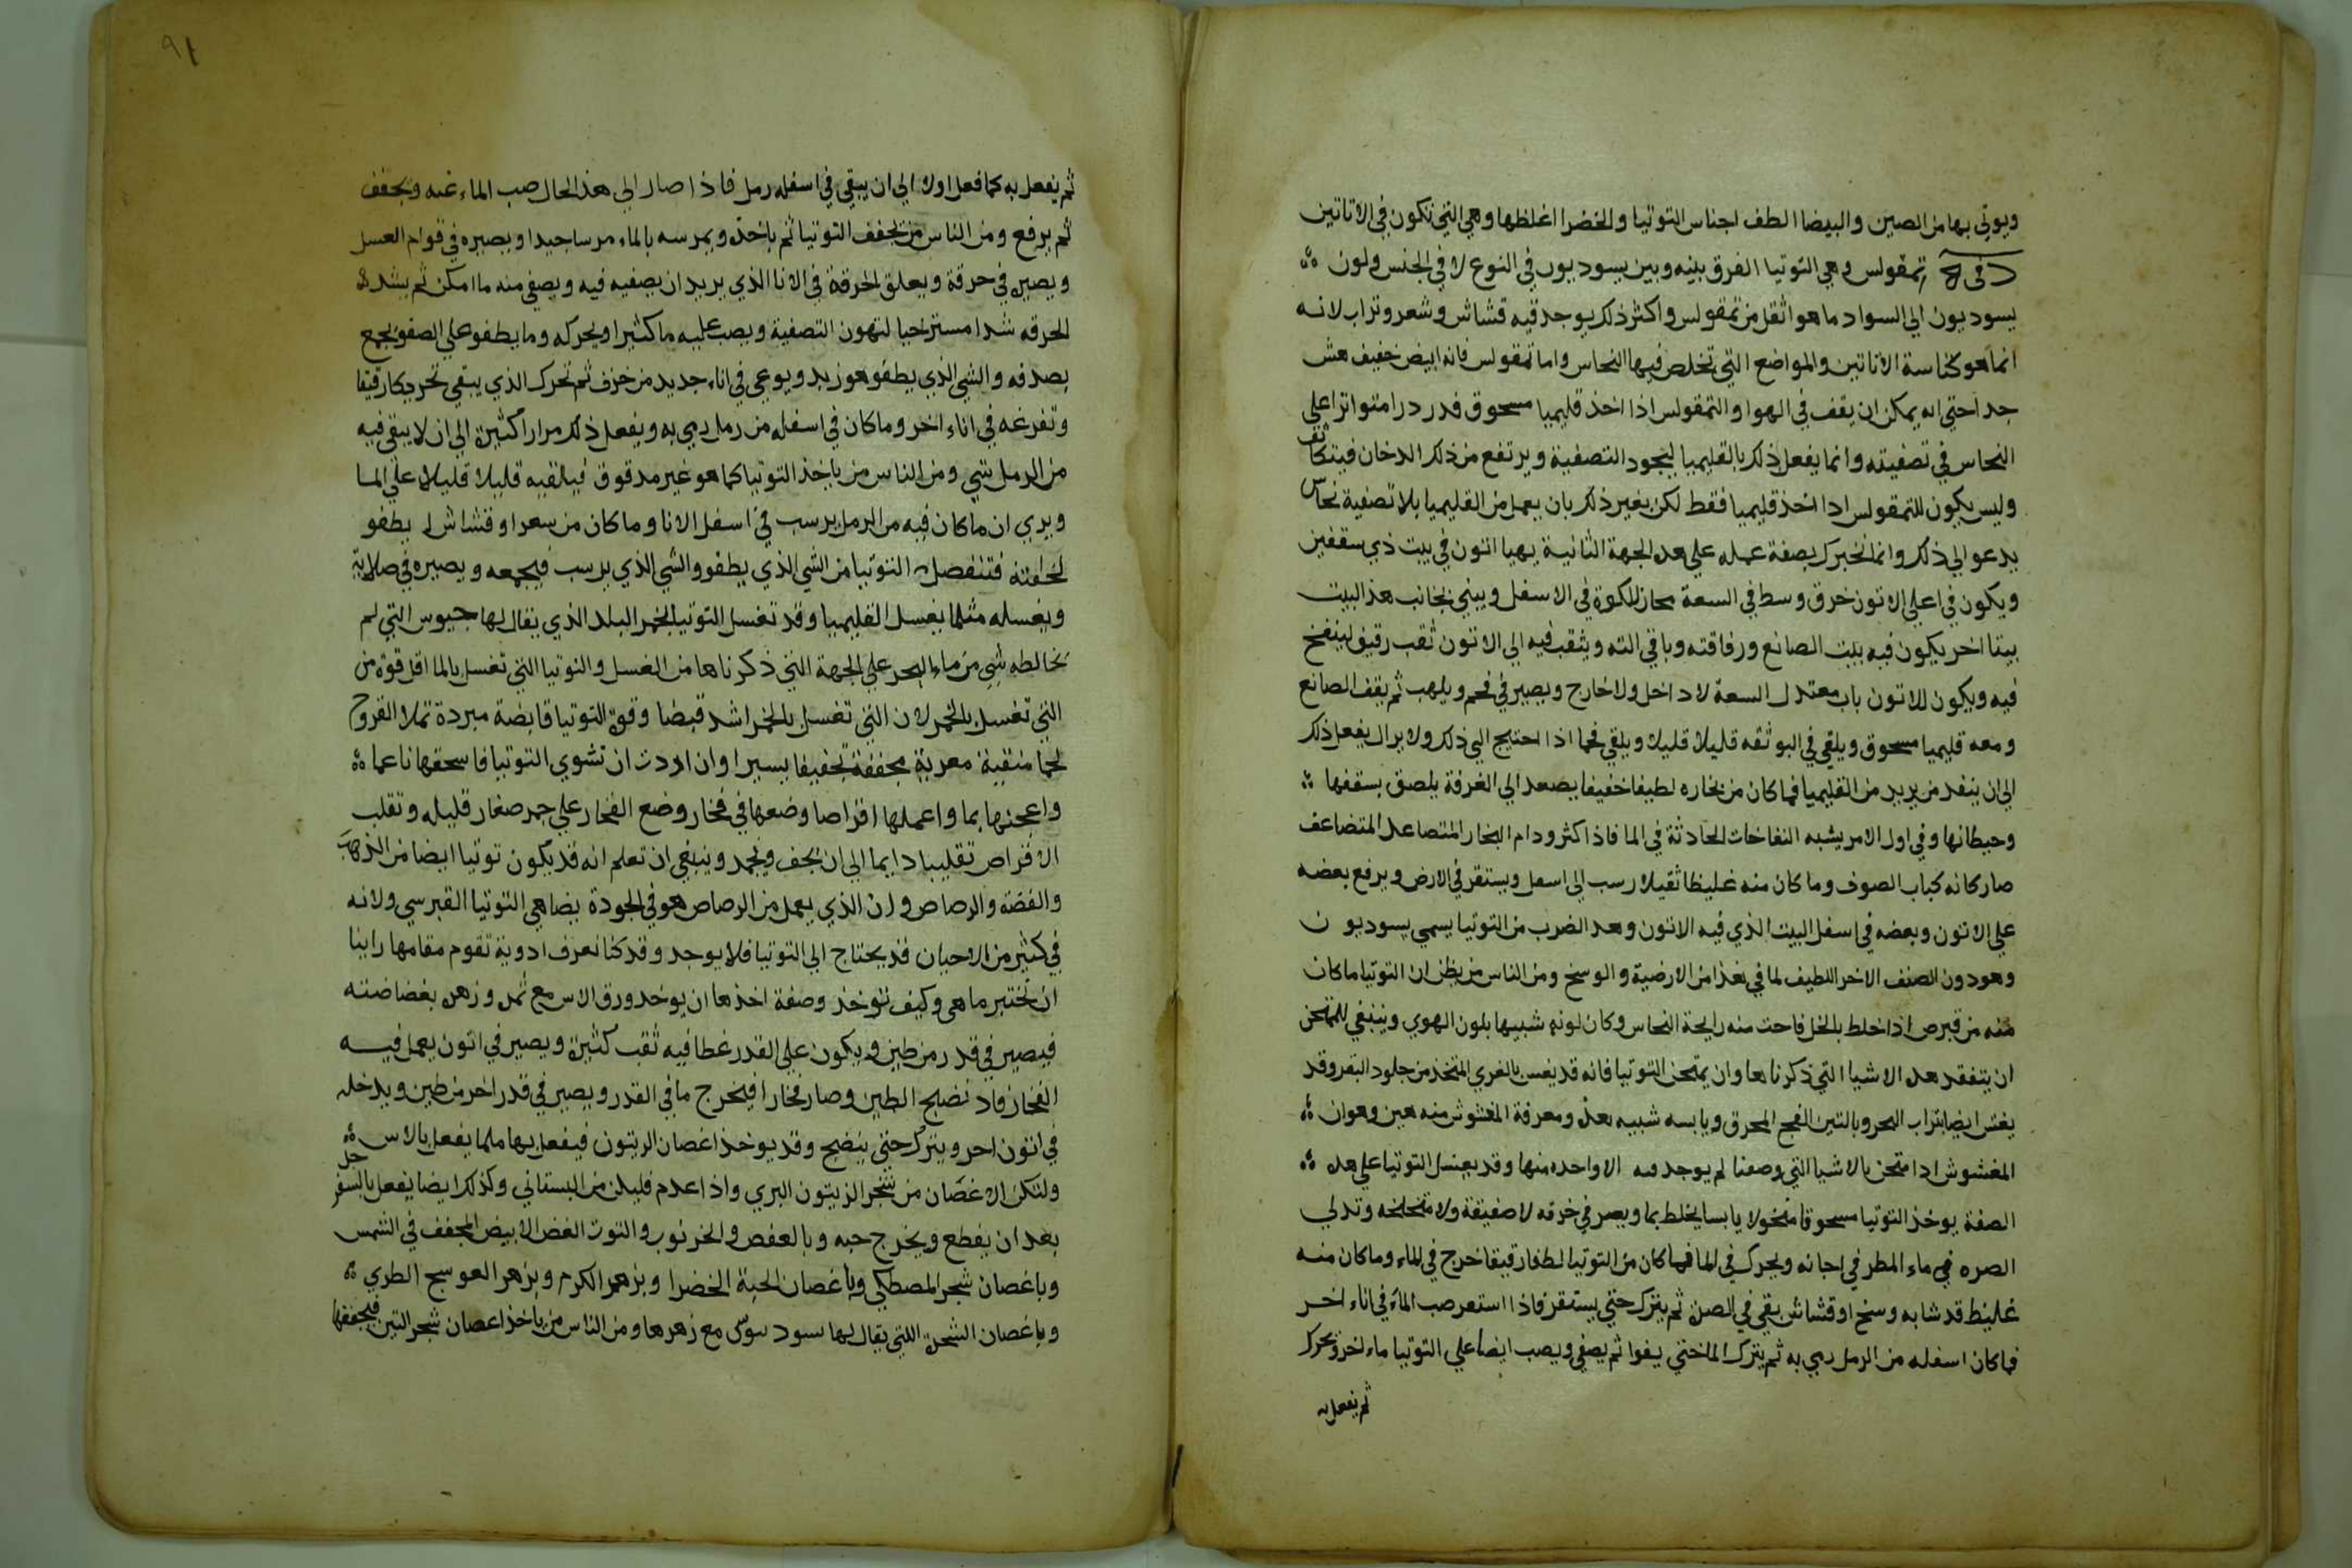 ويوتي بها من الصين والبيضا الطف اجناس التوتيا والخضرا اغلظها وهي التي تكون في الاتاتين
د في تمقولس وهي التوتيا الفرق بينه وبين بسوديون في النوع لا في الجنس ولون
بسوديون الي السواد ما هو اثقل من تمقولس واكثر ذلك يوجد فيه قشاش وشعر وتراب لانه
انما هو كناسة الاتاتين والمواضع التي تخلص فيها النحاس واما تمقولس فانه ابيض خفيف هش
جدا حتي انه يمكن ان يقف في الهوا والتمقولس اذا اخذ قليميا مسحوق فدر درا متواترا علي
النحاس في تصفيته وانما يفعل ذلك بالقليميا ليجود التصفية ويرتفع من ذلك الدخان فيتكاثف
وليس يكون للتمقولس اذا اخذ قليميا فقط لكن بغير ذلك بان يعمل من القليميا بلا تصفية نحاس
يدعو الي ذلك وانما نخبرك بصفة عمله علي هذه الجهة الثانية يهيا اتون في بيت ذي سقفين
ويكون في اعلي الاتون خرق وسط في السعة محاز للكوة في الاسفل ويبني بجانب هذا البيت
بيتا اخر يكون فيه بيت الصانع ورفاقته وباقي الته ويثقب فيه الي الاتون ثقب رقيق لينفخ
فيه ويكون للاتون باب معتدل السعة لا داخل ولا خارج ويصير في فحم ويلهب ثم يقف الصانع
ومعه قليميا مسحوق ويلقي في البوثقه قليلا قليلا ويلقي فحما اذا احتيج الي ذلك ولا يزال يفعل ذلك
الي ان ينفد من يريد من القليميا فما كان من بخاره لطيفا خفيفا يصعد الي الغرفة يلصق بسقفها
وحيطانها وفي اول الامر يشبه النفاخات الحادثة في الما فاذا كثر ودام البخار المتصاعد المتضاعف
صار كانه كباب الصوف وما كان منه غليظا ثقيلا رسب الي اسفل ويستقر في الارض ويرفع بعضه
علي الاتون وبعضه في اسفل البيت الذي فيه الاتون وهذا الضرب من التوتيا يسمي بسوديون
وهو دون الصنف الاخر اللطيف لما في هذا من الارضية والوسخ ومن الناس من يظن ان التوتيا ما كان
منه من قبرص اذا خلط بالخل فاحت منه رايحة النحاس وكان لونه شبيها بلون الهوي وينبغي للممتحن
ان يتفقد هذه الاشيا التي ذكرناها وان يمتحن التوتيا فانه قد يغش بالغري المتخذ من جلود البقر وقد
يغش ايضا بتراب البحر وبالتين الفج المحرق ويابسه شبيه بهذه ومعرفة المغشوش منه هين وهو ان
المغشوش اذا امتحن بالاشيا التي وصفنا لم يوجد فيه الا واحده منها وقد يغسل التوتيا علي هذه
الصفة يوخذ التوتيا مسحوقا منخولا يابسا يخلط بما ويصر في خرقه لا صفيقة ولا متخلخله وتدلي
الصره في ماء المطر في اجانه ويحرك في الما فما كان من التوتيا لطفا رقيقا خرج في الماء وما كان منه
غليظ قد شابه وسخ او قشاش بقي في الصرة ثم يترك حتي يستقر فاذا استقر صب الماء في اناء اخر
فما كان اسفله من الرمل رمي به ثم يترك الما حتي يصفوا ثم يصفي ويصب ايضا علي التوتيا ماء اخر ويحرك
ثم يفعل به
٩١
ثم يفعل به كما فعل اولا الي ان يبقي في اسفله رمل فاذا صار الي هذا الحال صب الماء عنه ويجفف
ثم يرفع ومن الناس من يجفف التوتيا ثم ياخذه ويمرسه بالماء مرسا جيدا ويصيره في قوام العسل
ويصيره في خرقة ويعلق الخرقة في الانا الذي يريد ان يصفيه فيه ويصفي منه ما امكن ثم يشده
الخرقه شدا مسترخيا لتهون التصفية ويصب عليه ما كثيرا ويحركه وما يطفو علي الصفو يجمع
بصدفه والشي الذي يطفو هو زبد ويوعي في اناء جديد من خزف ثم تحرك الذي يبقي تحريكا رقيقا
وتفرغه في اناء اخر وما كان في اسفله من رمل رمي به ويفعل ذلك مرارا كثيرة الي ان لا يبقي فيه
من الرمل شي ومن الناس من ياخذ التوتيا كما هو غير مدقوق فيلقيه قليلا قليلا علي الما
ويري ان ما كان فيه من الرمل يرسب في اسفل الانا وما كان من شعر او قشاش يطفو
لخفته فتنفصل التوتيا من الشي الذي يطفو والشي الذي يرسب فيجمعه ويصيره في صلاية
ويغسله مثلما يغسل القليميا وقد تغسل التوتيا بخمر البلد الذي يقال لها جيوس التي لم
يخالطه شي من ماء البحر علي الجهة التي ذكرناها من الغسل والتوتيا التي تغسل بالما اقل قوة من
التي تغسل بالخمر لان التي تغسل بالخمر اشد قبضا وقوة التوتيا قابضة مبردة تملا القروح
لحما منقية مغرية مجففة تجفيفا يسيرا وان اردت ان تشوي التوتيا فاسحقها ناعما
واعجنها بما واعملها اقراصا وضعها في فخار وضع الفخار علي جمر صغار قليله وتقلب
الاقراص تقليبا دايما الي ان يجف ويجمد وينبغي ان تعلم انه قد يكون توتيا ايضا من الذهب
والفضه والرصاص وان الذي يعمل من الرصاص هو في الجودة يضاهي التوتيا القبرسي ولانه
في كثير من الاحيان قد يحتاج الي التوتيا فلا يوجد وقد كنا نعرف ادوية تقوم مقامها راينا
ان نختبر ما هي وكيف توخذ وصفة اخذها ان يوخذ ورق الاس مع ثمره وزهره بغضاضته
فيصير في قدر من طين ويكون علي القدر غطا فيه ثقب كثيرة ويصير في اتون يعمل فيه
الفخار فاذا نضج الطين وصار فخارا فيخرج ما في القدر ويصير في قدر اخر من طين ويدخله
في اتون اخر ويترك حتي ينضج وقد يوخذ اغصان الزيتون فيفعل بها مثلما يفعل بالاس
ولتكن الاغصان من شجر الزيتون البري واذا عدم فليكن من البستاني وكذلك ايضا يفعل بالسفرجل
بعد ان يقطع ويخرج حبه وبالعفص والخرنوب والتوت الغض الابيض المجفف في الشمس
وباغصان شجر المصطكي وباغصان الحبة الخضرا وبزهر الكرم وبزهر العوسج الطري
وباغصان الشجرة اللتي يقال لها مع زهرها ومن الناس من ياخذ اغصان شجر التين فيجففها